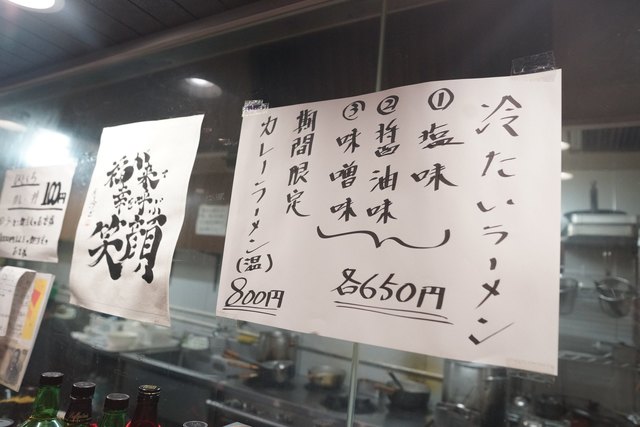 冷たいラーメン
①塩味
②醤油味
③味噌味
各650円
期間限定
カレーラーメン(温)
800円
笑顔
100円